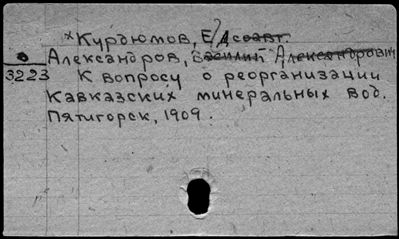 ×Курдюмов, Е/Д соавт.
Александров, Василий Александрович
О
3223
К вопросу о реорганизации
Кавказских минеральных вод.
Пятигорск, 1909.